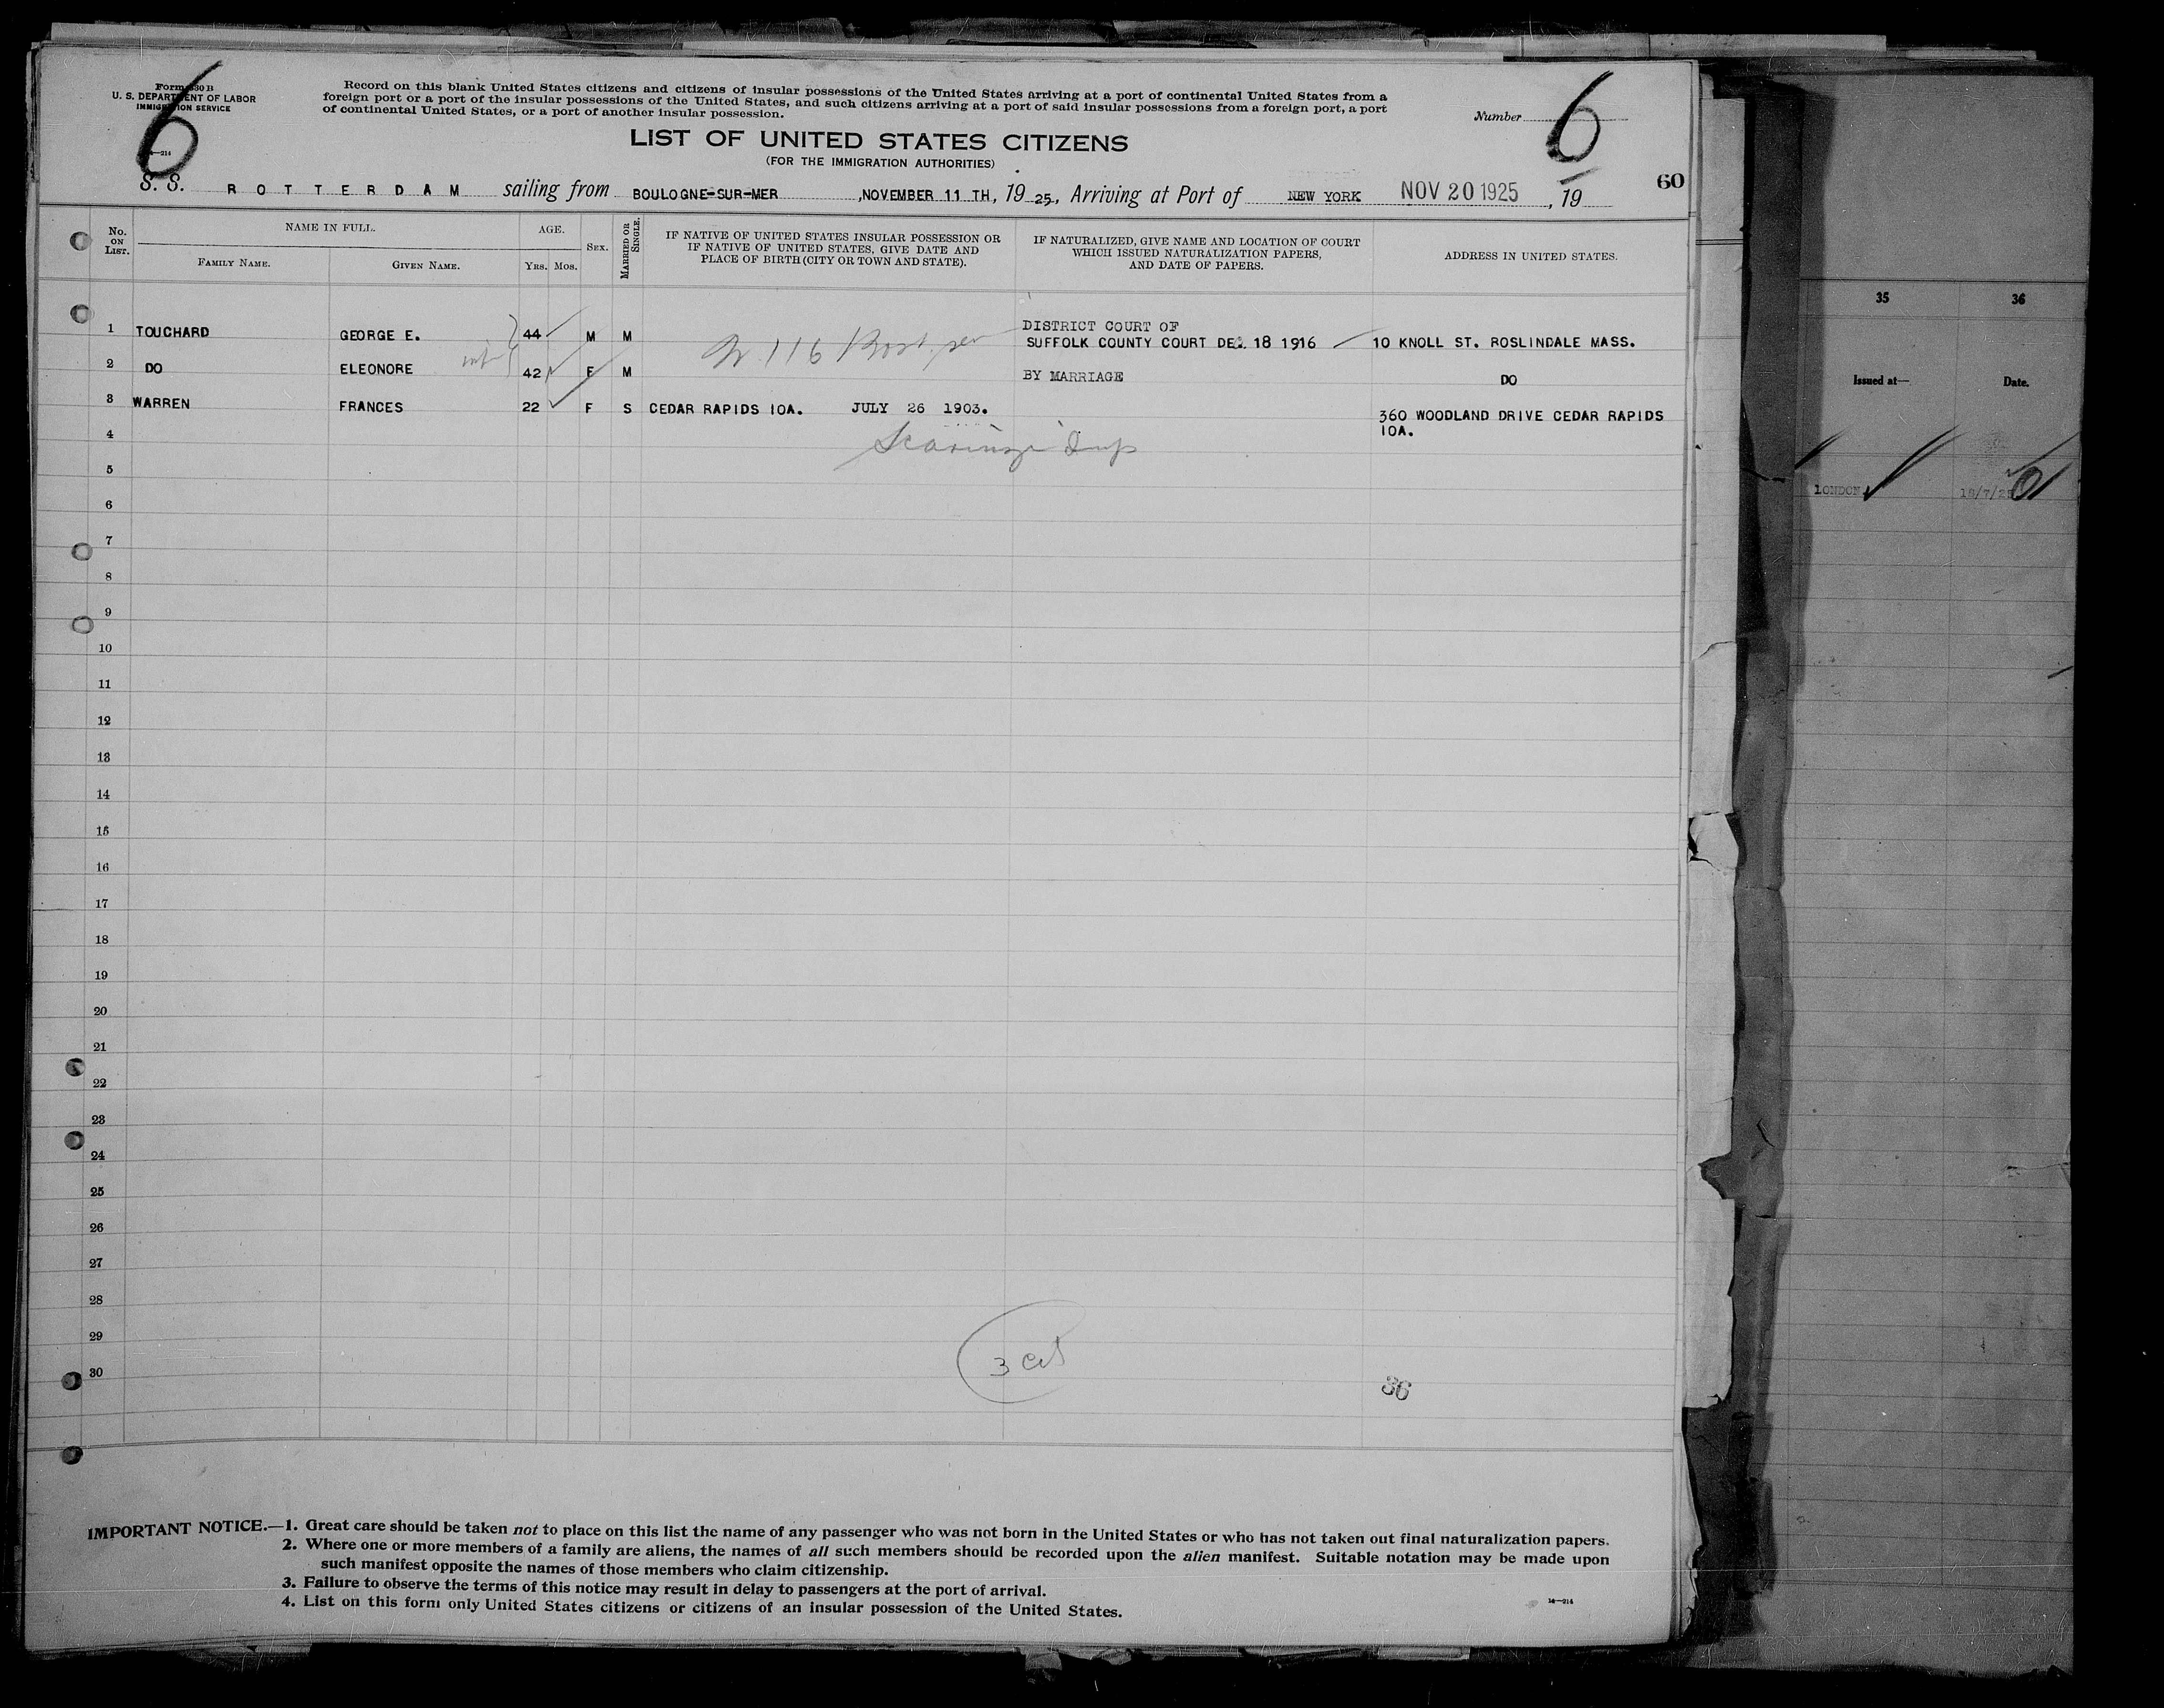 Form 630 B
U. S. DEPARTMENT OF LABOR
IMMIGRATION SERVICE
6
Record on this blank United States citizens and citizens of insular possessions of the United States arriving at a port of continental United States from a
foreign port or a port of the insular possessions of the United States, and such citizens arriving at a port of said insular possessions from a foreign port, a port
of continental United States, or a port of another insular possession.
Number 6
LIST OF UNITED STATES CITIZENS
(FOR THE IMMIGRATION AUTHORITIES)
60
S. S. ROTTERDAM sailing from BOULOGNE-SUR-MER ,NOVEMBER 11 TH, 19 25, Arriving at Port of NEW YORK NOV 20 1925, 19
No. ON LIST.
NAME IN FULL.
FAMILY NAME. GIVEN NAME.
AGE.
YRS. MOS.
SEX.
MARRIED OR SINGLE.
IF NATIVE OF UNITED STATES INSULAR POSSESSION OR
IF NATIVE OF UNITED STATES, GIVE DATE AND
PLACE OF BIRTH (CITY OR TOWN AND STATE).
IF NATURALIZED, GIVE NAME AND LOCATION OF COURT
WHICH ISSUED NATURALIZATION PAPERS,
AND DATE OF PAPERS.
ADDRESS IN UNITED STATES.
DISTRICT COURT OF
1 TOUCHARD GEORGE E. 44 M M SUFFOLK COUNTY COURT DEC. 18 1916 10 KNOLL ST. ROSLINDALE MASS.
116
2 DO ELEONORE 42 F M BY MARRIAGE DO
3 WARREN FRANCES 22 F S CEDAR RAPIDS IOA. JULY 26 1903. 360 WOODLAND DRIVE CEDAR RAPIDS
IOA.
4
5
6
7
8
9
10
11
12
13
14
15
16
17
18
19
20
21
22
23
24
25
26
27
28
29
30
3 cit
36
IMPORTANT NOTICE.—1. Great care should be taken not to place on this list the name of any passenger who was not born in the United States or who has not taken out final naturalization papers.
2. Where one or more members of a family are aliens, the names of all such members should be recorded upon the alien manifest. Suitable notation may be made upon
such manifest opposite the names of those members who claim citizenship.
3. Failure to observe the terms of this notice may result in delay to passengers at the port of arrival.
4. List on this form only United States citizens or citizens of an insular possession of the United States.
14—214
35 36
Issued at— Date.
LONDON